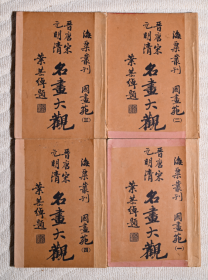 海粟叢刊 國畫苑(三)
晉唐宋
元明清
名畫大觀
葉恭綽題
海粟叢刊 國畫苑(二)
晉唐宋
元明清
名畫大觀
葉恭綽題
海粟叢刊 國畫苑(四)
晉唐宋
元明清
名畫大觀
葉恭綽題
海粟叢刊 國畫苑(一)
晉唐宋
元明清
名畫大觀
葉恭綽題